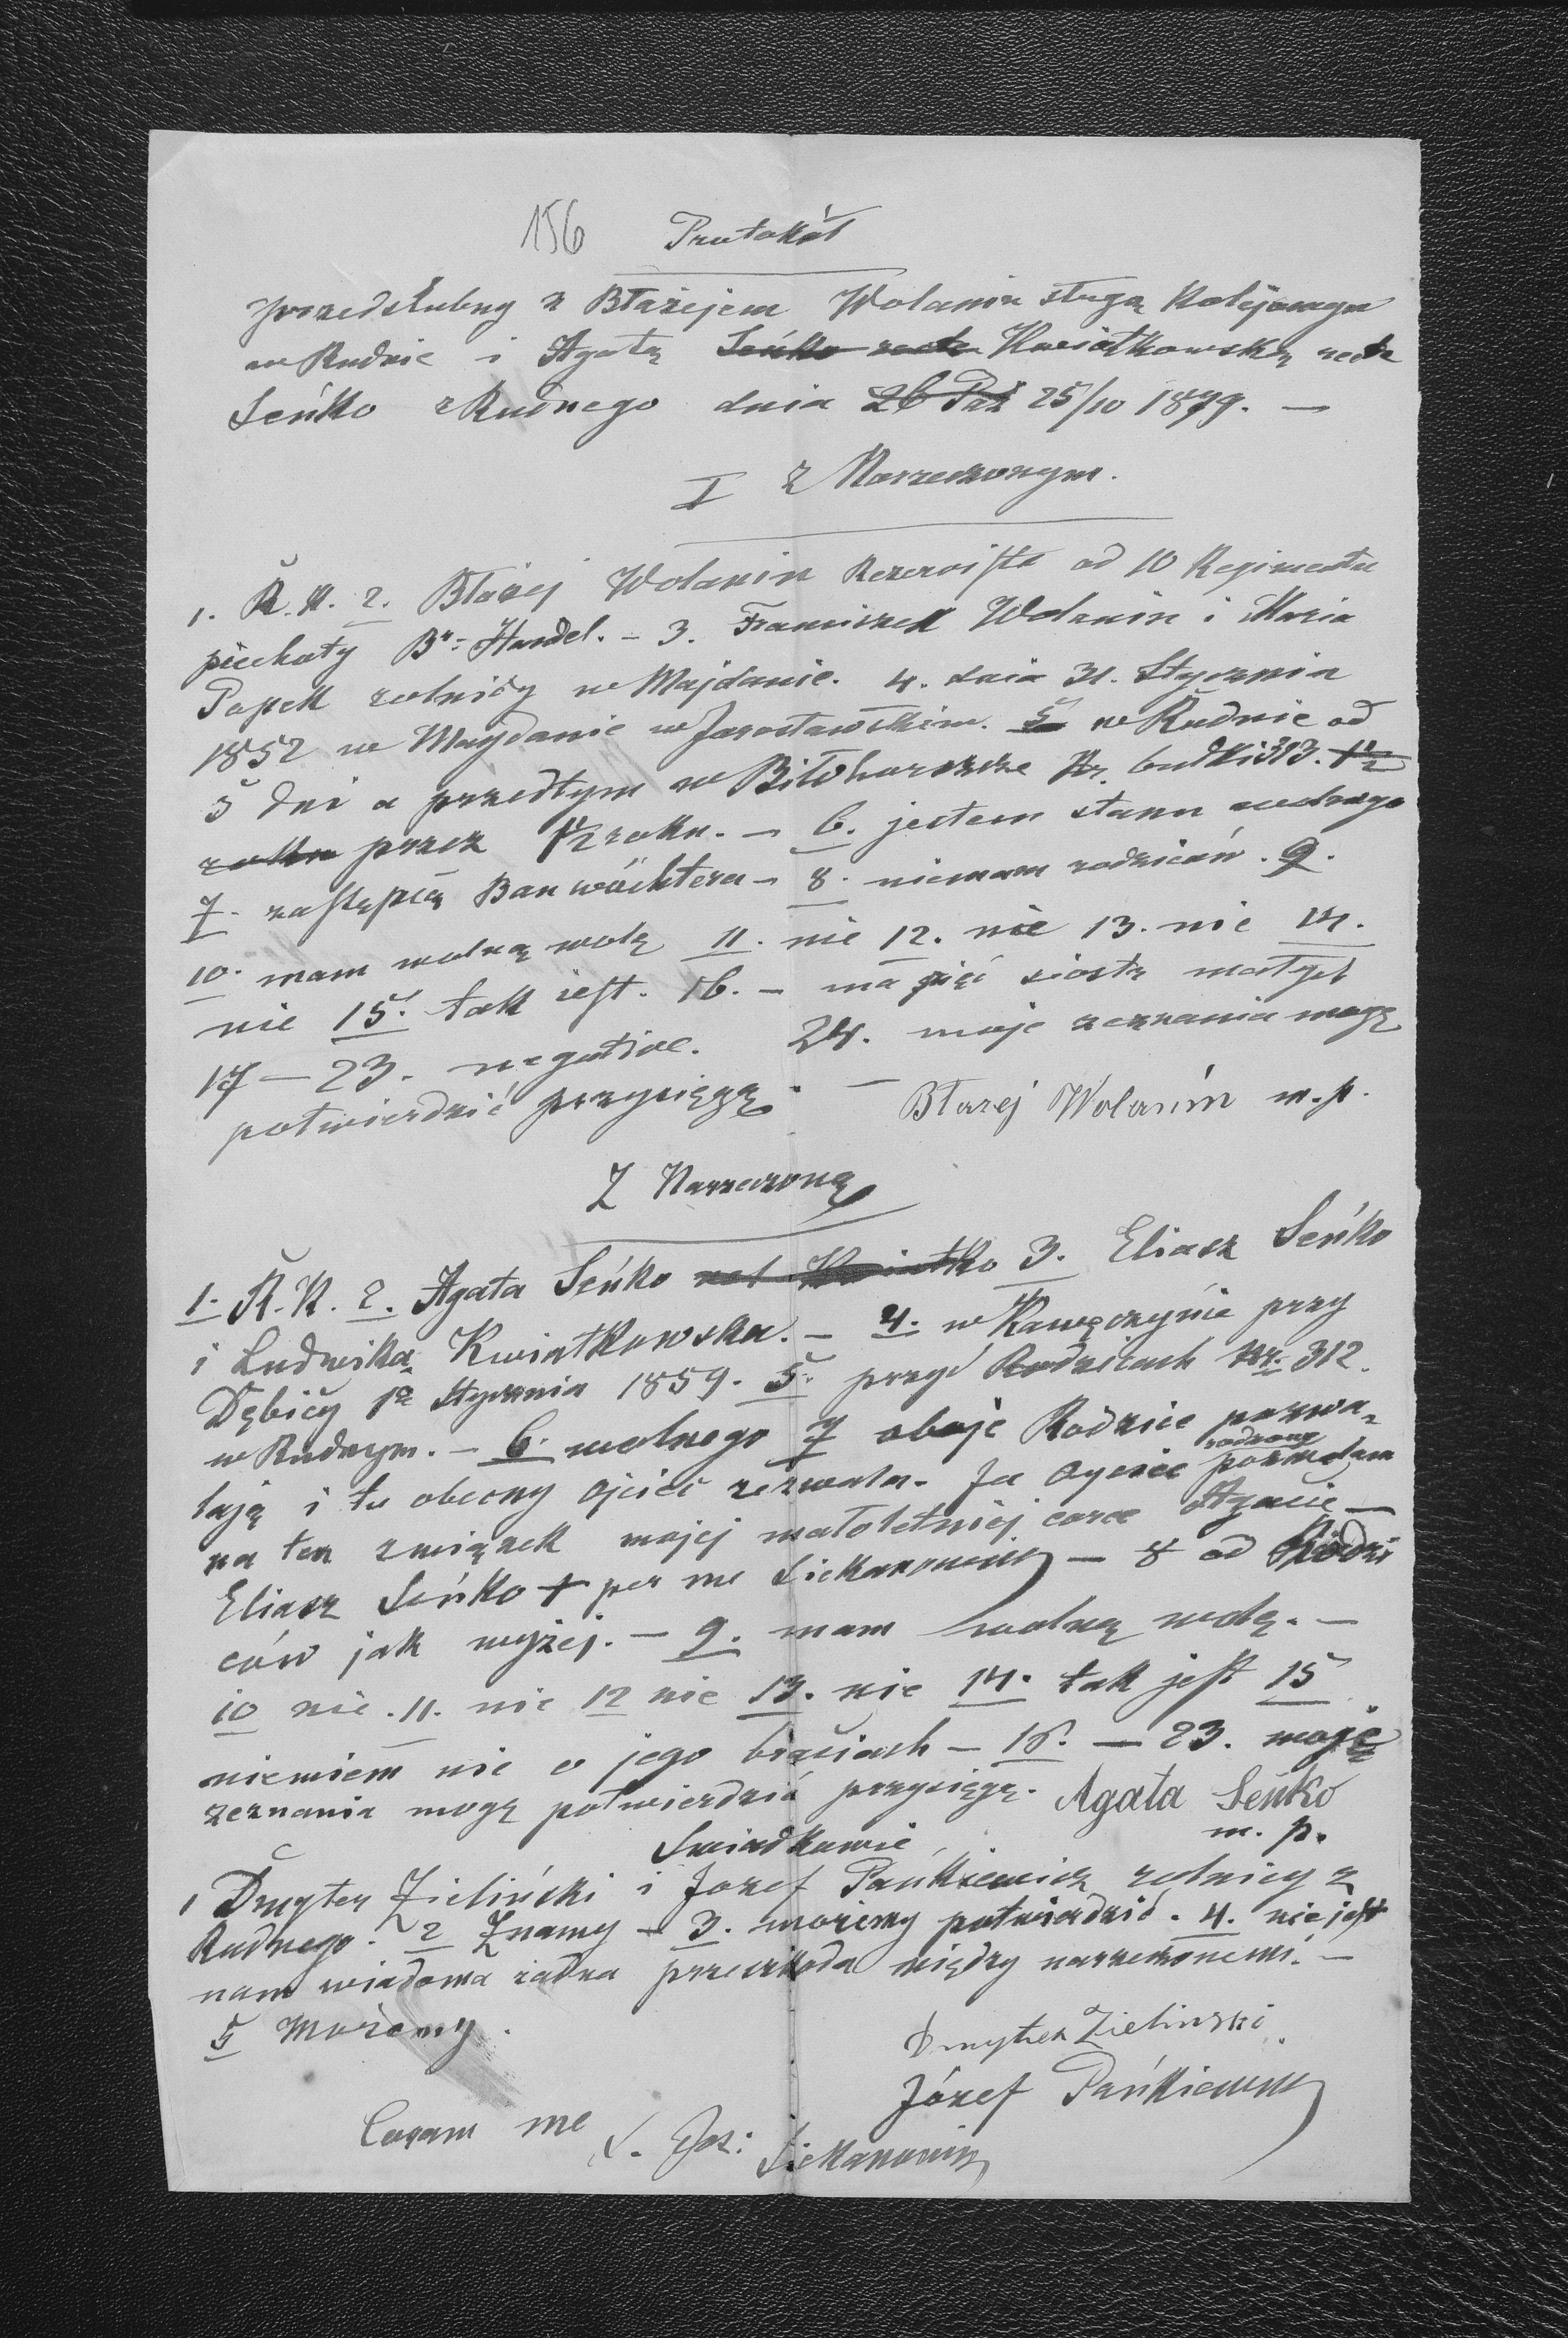 156 Protokół
przedślubny z Błażejem Wolanin sługą kolejowym
w Rudnie i Agatą Seńko recte Kwiatkowską recte
Seńko z Rudnego dnia 26 Paź 25/10 1879. —
I z Narzeczonym.
1. R. K. 2. Błażej Wolanin Rezerwista od 10 Regimentu
piechoty Br: Handel. – 3. Franciszek Wolanin i Maria
Papek rolnicy w Majdanie. 4. dnia 31. Stycznia
1852 w Majdanie w Jarosławskim. 5 w Rudnie od
5 dni a przedtym w Biłohorszcze Nr. budki 313. 1½
roku przez 1½ roku. – 6. jestem stanu wolnego
7. zastępcą Banwächtera – 8. niemam rodziców. 9.
10. mam wolną wolę 11. nie 12. nie 13. nie 14.
nie 15. tak jest. 16. – ma pięć siostr małych
17 – 23. negative. 24. moje zeznania mogę
potwierdzić przysięgą. — Błazej Wolanin m. p.
Z Narzeczoną
1. R. K. 2. Agata Seńko 3. Eliasz Seńko
i Ludwika Kwiatkowska. – 4. w Kawęczynie przy
Dębicy 1go Stycznia 1859. 5. przy Rodzicach Nr. 312.
w Rudnym. – 6. wolnego 7 oboje Rodzice pozwa-
lają i tu obecny Ojciec zezwala. Ja Ojciec rodzony pozwalam
na ten związek mojej małoletniej corce Agacie —
Eliasz Seńko + per me Siekanowicz — 8 od Rodzi
ców jak wyżej. – 9. mam wolną wolę. —
10 nie. 11. nie 12 nie 13. nie 14. tak jest 15
niewiem nic o jego braciach – 16. — 23. moje
zeznania mogę potwierdzić przysięgą. Agata Seńko
m. p.
Swiadkowie
1 Dmyter Zieliński i Jozef Pańkiewicz rolnicy z
Rudnego. 2 Znamy – 3. możemy potwierdzić. 4. nie jest
nam wiadoma żadna przeszkoda między narzeczonemi. —
5 Możemy.
Dmyter Zielinski
Józef Pańkiewicz
Coram me X. Jos: Siekanowicz